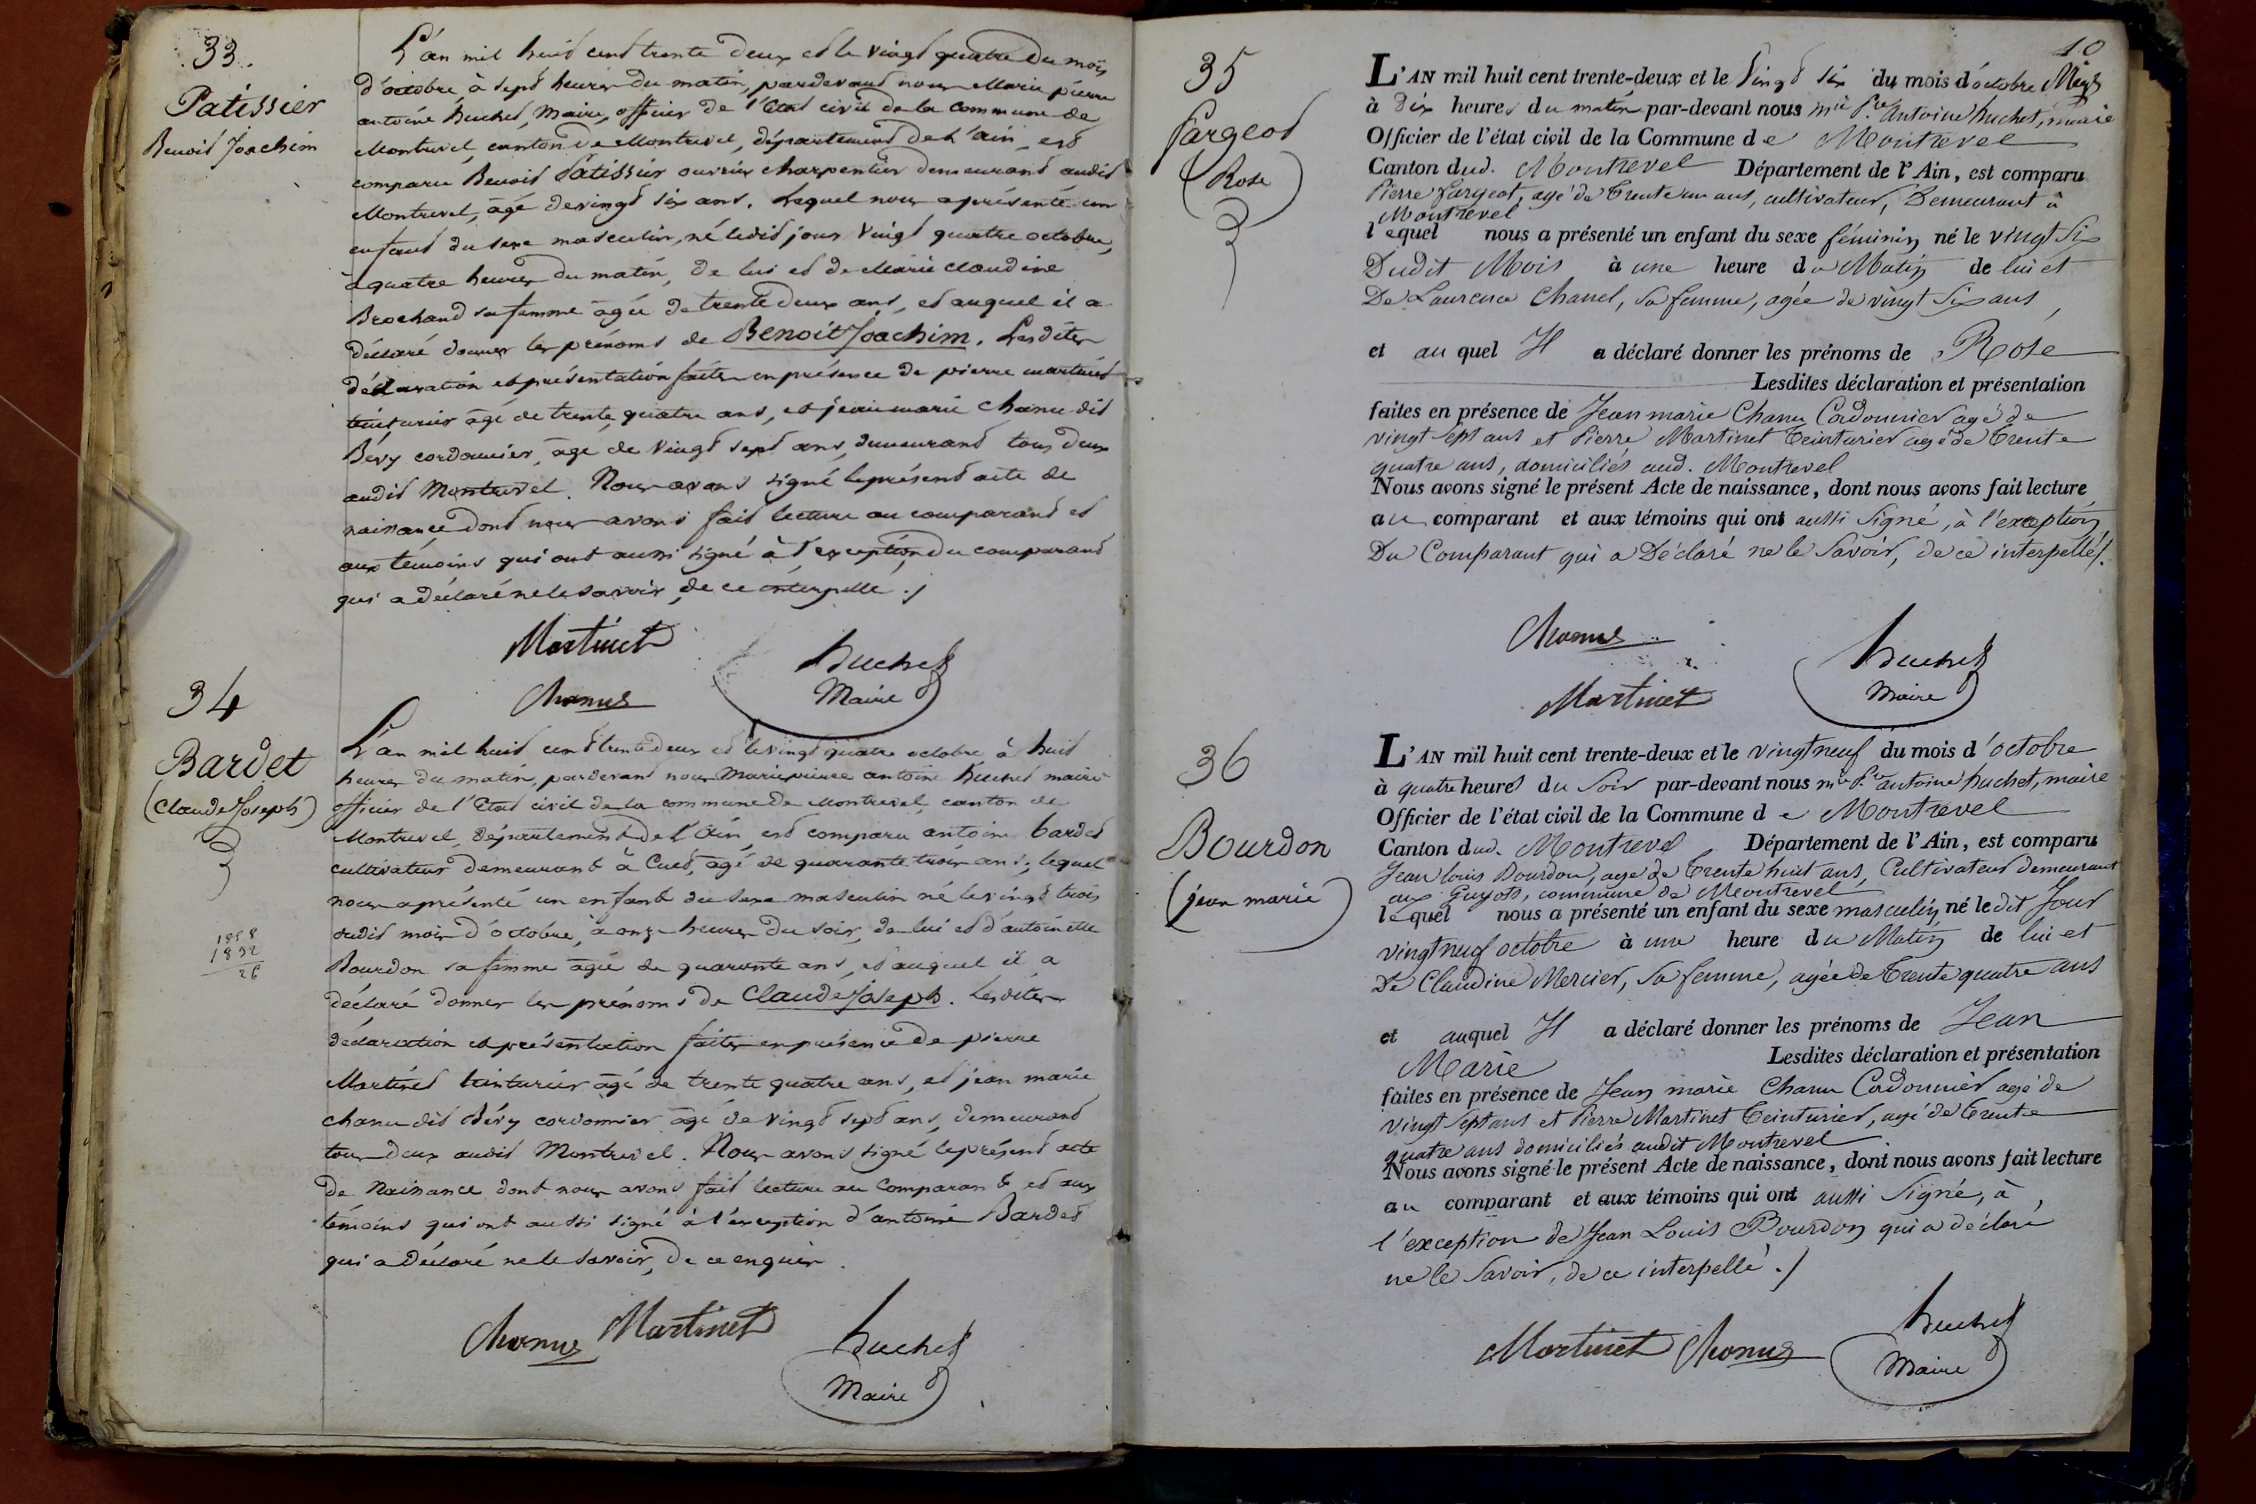 33.
Patissier
Benoit Joachim
L'an mil huit cent trente deux et le vingt quatre du mois
d'octobre à sept heures du matin, pardevant nous Marie pierre
antoine huchet, Maire, officier de l'Etat civil de la commune de
Montrevel, canton de Montrevel, département de l'ain, est
comparu Benoit Patissier ouvrier charpentier demeurant audit
Montrevel, âgé de vingt six ans. Lequel nous a présenté un
enfant du sexe masculin, né ledit jour vingt quatre octobre,
à quatre heures du matin, de lui et de Marie claudine
Brochand sa femme âgée de trente deux ans, et auquel il a
déclaré donner les prénoms de Benoit Joachim. Lesdites
déclaration et présentation faites en présence de pierre martinet
teinturier âgé de trente quatre ans, et jean marie chanu dit
Bévy cordonnier, âgé de vingt sept ans, demeurant tous deux
audit Montrevel. Nous avons signé le présent acte de
naissance dont nous avons fait lecture au comparant et
aux témoins qui ont aussi signé à l'exception du comparant
qui a déclaré ne le savoir, de ce interpellé ./
Martinet
Chanus
huchet
Maire
34
Bardet
(Claude Joseph)
1858
1832
26
L'an mil huit cent trente deux et le vingt quatre octobre à huit
heures du matin, pardevant nous Marie pierre antoine huchet maire
officier de l'Etat civil de la commune de Montrevel canton de
Montrevel, département de l'Ain, est comparu antoine bardet
cultivateur demeurant à Cuet, âgé de quarante trois ans, lequel
nous a présenté un enfant du sexe masculin né le vingt trois
dudit mois d'octobre, à onze heures du soir, de lui et d'antoinette
Bourdon sa femme âgée de quarante ans, et auquel il a
déclaré donner les prénoms de Claude Joseph. Lesdites
déclaration et présentation faites en présence de pierre
Martinet teinturier âgé de trente quatre ans, et jean marie
chanu dit Bévy cordonnier âgé de vingt sept ans, demeurant
tous deux audit Montrevel. Nous avons signé le présent acte
de Naissance dont nous avons fait lecture au Comparant et aux
témoins qui ont aussi signé à l'exception d'antoine Bardet
qui a déclaré ne le savoir, de ce enquis.
Chanus Martinet
huchet
Maire
10
35
fargeot
(Rose)
L'AN mil huit cent trente-deux et le Vingt six du mois d'octobre
à Dix heures du matin par-devant nous mie Pre antoine huchet, maire
Officier de l'état civil de la Commune de Montrevel
Canton dud. Montrevel Département de l'Ain, est comparu
Pierre fargeot, agé de Trente un ans, cultivateur, Demeurant à
Montrevel
lequel nous a présenté un enfant du sexe féminin né le vingt Six
Dudit Mois à une heure du Matin de lui et
De Laurence Chanel, sa femme, agée de vingt Six ans,
et auquel Il a déclaré donner les prénoms de Rose
Lesdites déclaration et présentation
faites en présence de Jean marie Chanu Cordonnier agé de
vingt Sept ans et Pierre Martinet Teinturier agé de Trente
quatre ans, domiciliés aud. Montrevel
Nous avons signé le présent Acte de naissance, dont nous avons fait lecture
au comparant et aux témoins qui ont aussi Signé, à l'exception
Du Comparant qui a Déclaré ne le Savoir, de ce interpellé./.
Chanus
Martinet
huchet
Maire
36
Bourdon
(jean marie)
L'AN mil huit cent trente-deux et le vingt neuf du mois d'octobre
à quatre heures du Soir par-devant nous mie Pre antoine huchet, maire
Officier de l'état civil de la Commune de Montrevel
Canton dud. Montrevel Département de l'Ain, est comparu
Jean louis Bourdon, agé de Trente huit ans, Cultivateur demeurant
aux Guyots, commune de Montrevel
lequel nous a présenté un enfant du sexe masculin né ledit Jour
vingt neuf octobre à une heure du Matin de lui et
De Claudine Mercier, sa femme, agée de Trente quatre ans
et auquel Il a déclaré donner les prénoms de Jean
Marie Lesdites déclaration et présentation
faites en présence de Jean marie Chanu Cordonnier agé de
vingt Sept ans et Pierre Martinet Teinturier, agé de Trente
quatre ans domiciliés audit Montrevel
Nous avons signé le présent Acte de naissance, dont nous avons fait lecture
au comparant et aux témoins qui ont aussi Signé, à
l'exception de Jean Louis Bourdon qui a déclaré
ne le Savoir, de ce interpellé ./
Martinet Chanus
huchet
Maire